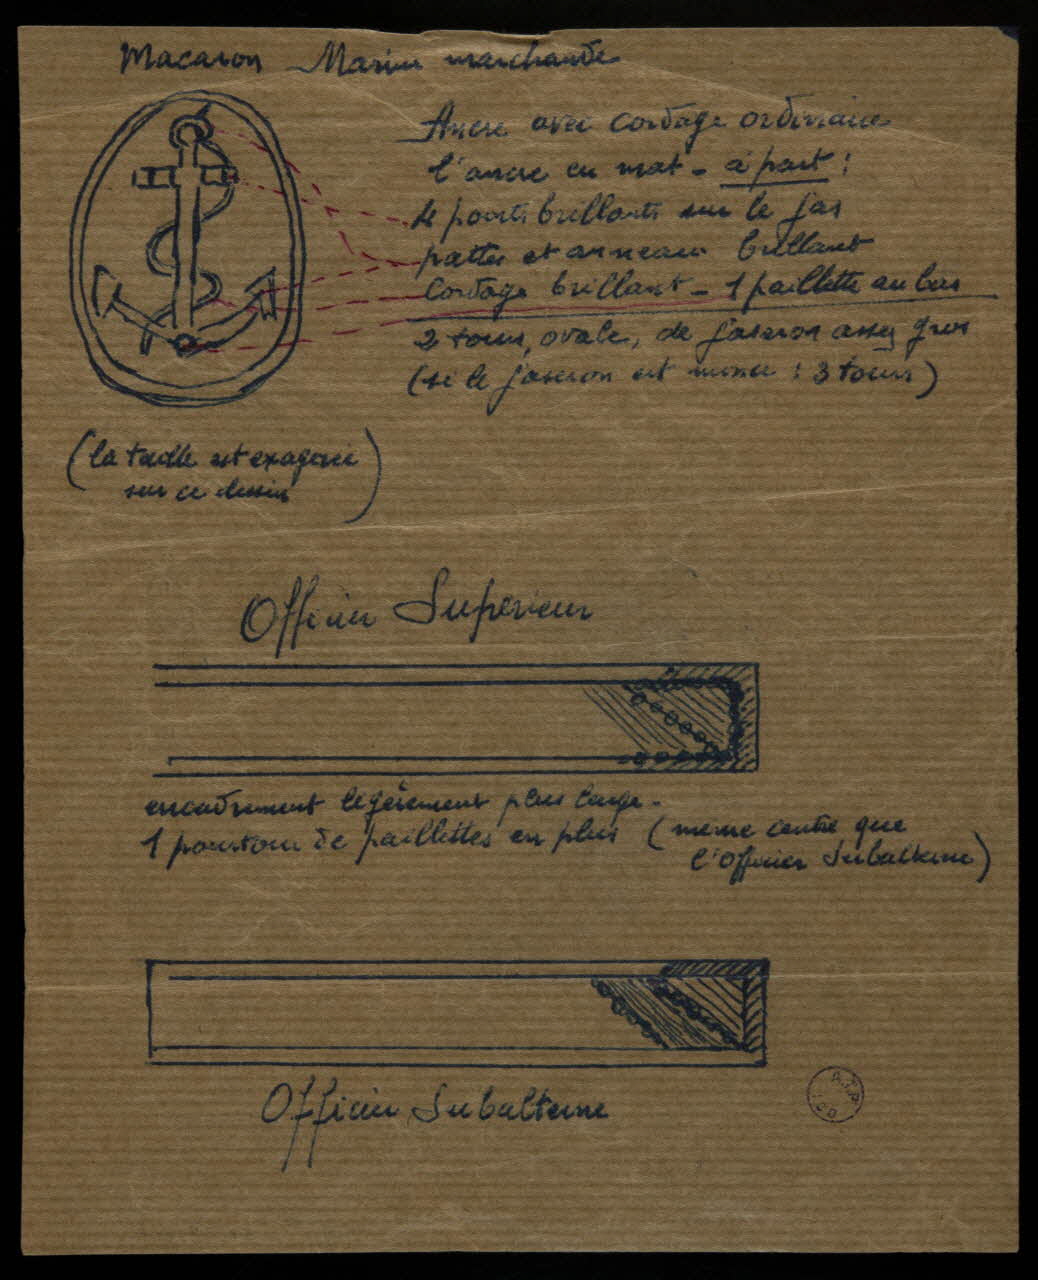 Macaron Marine marchande
Ancre avec cordage ordinaire
l'ancre en mat - à part :
4 points brillants sur le jas
pattes et anneau brillant
Cordage brillant - 1 paillette au bas
2 tours, ovale, de jaseron assez gros
(si le jaseron est mince : 3 tours)
(la taille est exagérée
sur ce dessin)
Officier Supérieur
encadrement légèrement plus large.
1 pourtour de paillettes en plus (même centre que
l'Officier Subalterne)
Officier Subalterne